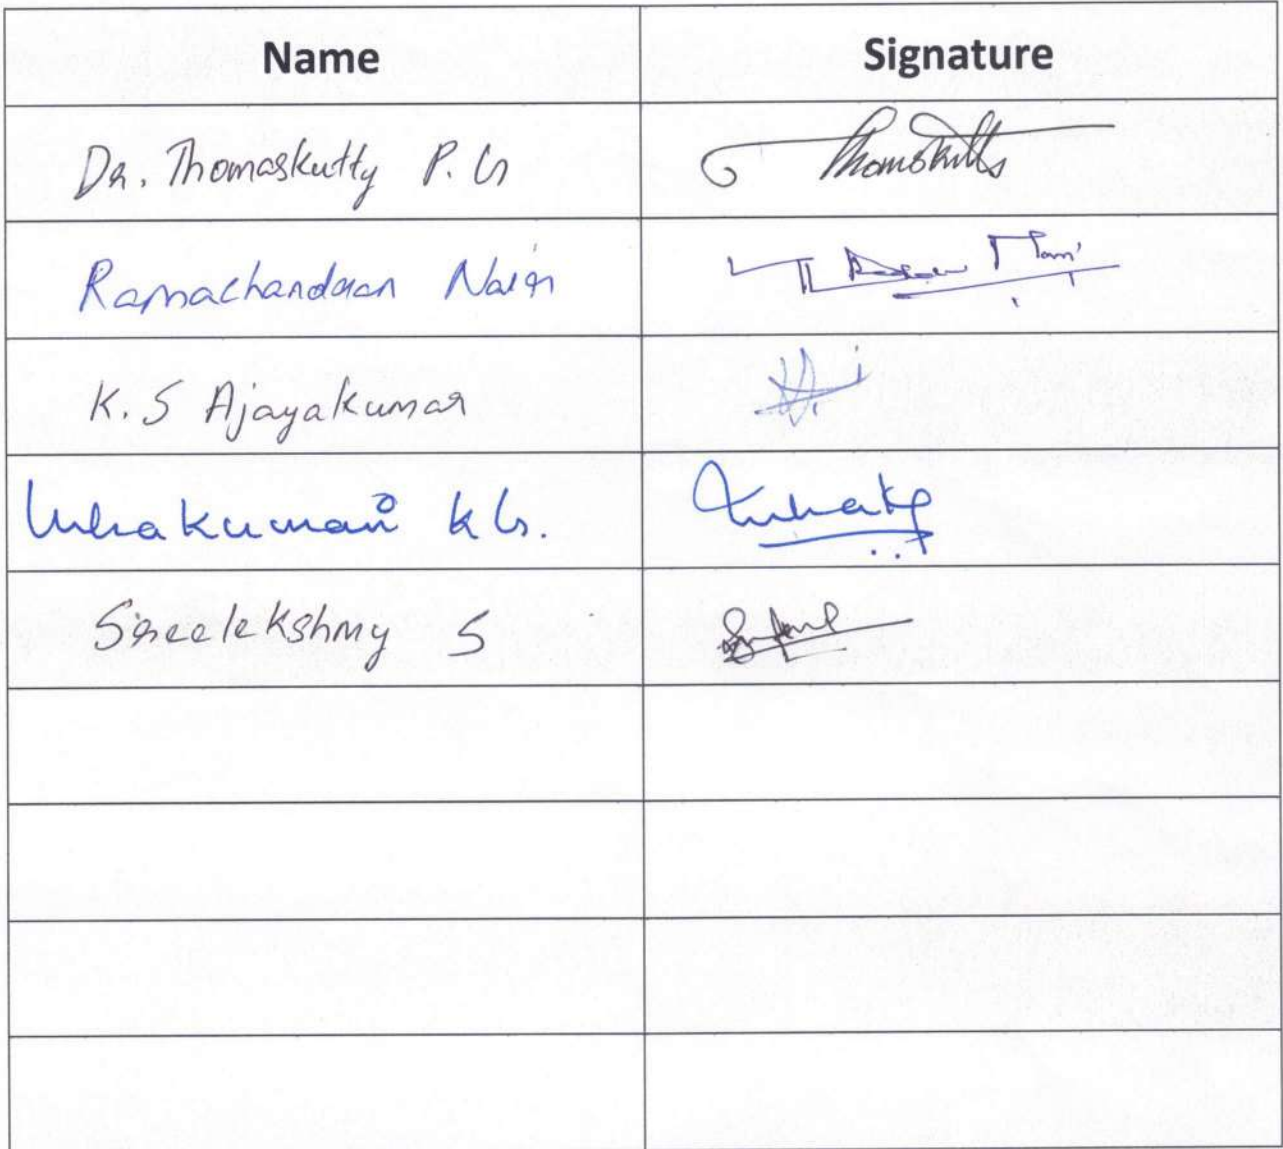 Name Signature
Dr. Thomaskutty P. G Thomskutty
Ramachandran Nair
K. S Ajayakumar
Ushakumari K G.
Sreelekshmy S